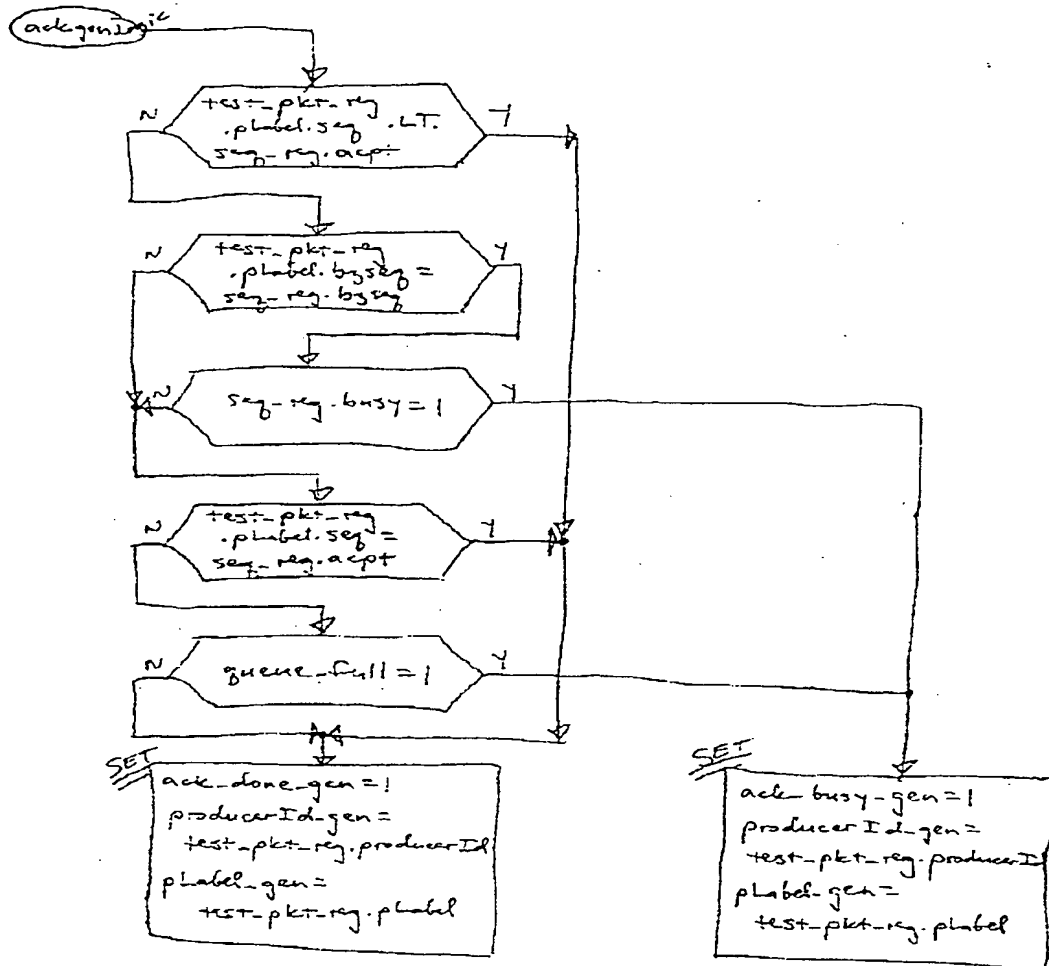 ackgenlogic
test_pkt_reg
.pLabel.seq .LT.
seq_reg.acpt
N
Y
test_pkt_reg
.pLabel.bzseq =
seq_reg.bzseq
N
Y
seq_reg.busy = 1
N
Y
test_pkt_reg
.pLabel.seq =
seq_reg.acpt
N
Y
queue_full = 1
N
Y
SET
ack_done_gen = 1
producerId_gen =
test_pkt_reg.producerId
pLabel_gen =
test_pkt_reg.pLabel
SET
ack_busy_gen = 1
producerId_gen =
test_pkt_reg.producerId
pLabel_gen =
test_pkt_reg.pLabel